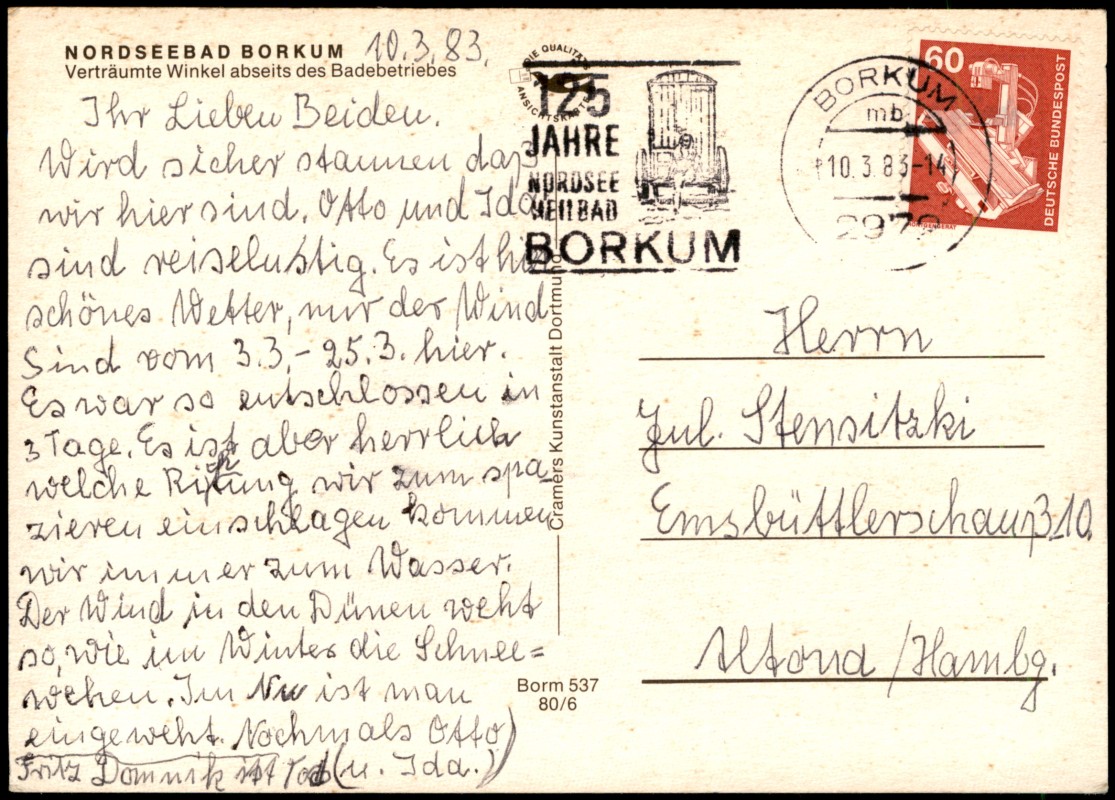 NORDSEEBAD BORKUM 10.3.83.
Verträumte Winkel abseits des Badebetriebes
Ihr Lieben Beiden.
Wird sicher staunen daß
wir hier sind. Otto und Ida
sind reiselustig. Es ist hier
schönes Wetter, nur der Wind
Sind vom 3.3. - 25.3. hier.
Es war so entschlossen in
3 Tage. Es ist aber herrlich
welche Richtung wir zum spa-
zieren einschlagen kommen
wir immer zum Wasser.
Der Wind in den Dünen weht
so, wie im Winter die Schnee=
wehen. Im Nu ist man
eingeweht. Nochmals Otto
Fritz Domnik ist Tod (u. Ida.)
DIE QUALITÄTS
ANSICHTSKARTE
125
JAHRE
NORDSEE
HEILBAD
BORKUM
BORKUM
mb
10.3.83-14
2972
60
DEUTSCHE BUNDESPOST
Cramers Kunstanstalt Dortmund
Borm 537
80/6
Herrn
Jul. Stensitzki
Emsbüttlerschauß.10.
Altona/Hambg.